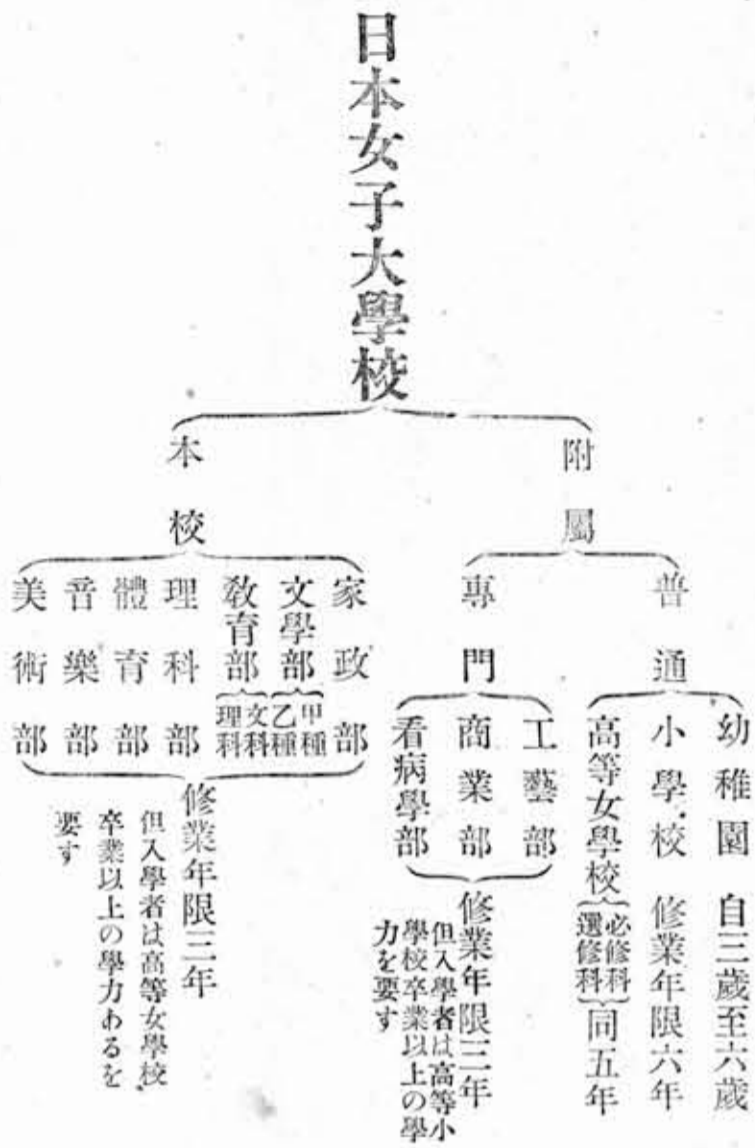 日本女子大學校
附屬
普通
幼稚園 自三歲至六歲
小學校 修業年限六年
高等女學校
必修科
選修科
同五年
專門
工藝部
商業部
看病學部
修業年限三年
但入學者は高等小
學校卒業以上の學
力を要す
本校
家政部
文學部
甲種
乙種
敎育部
文科
理科
理科部
體育部
音樂部
美術部
修業年限三年
但入學者は高等女學校
卒業以上の學力あるを
要す